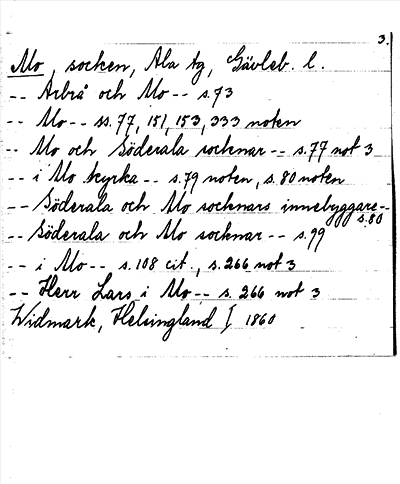 3.
Mo, socken, Ala tg, Gävleb. l.
-- Arbrå och Mo -- s. 73
-- Mo -- ss. 77, 151, 153, 333 noten
-- Mo och Söderala socknar -- s. 77 not 3
-- i Mo kyrka -- s. 79 noten, s. 80 noten
-- Söderala och Mo socknars innebyggare --
s. 80
-- Söderala och Mo socknar -- s. 99
-- i Mo -- s. 108 cit., s. 266 not 3
-- Herr Lars i Mo -- s. 266 not 3
Widmark, Helsingland I 1860